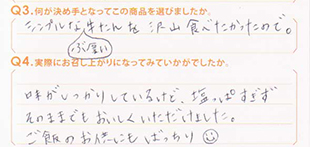 Q3.何が決め手となってこの商品を選びましたか。
シンプルな牛たんを沢山食べたかったので。
ぶ厚い
Q4.実際にお召し上がりになってみていかがでしたか。
味がしっかりしているけど、塩っぱすぎず
そのままでもおいしくいただけました。
ご飯のお供にもばっちり